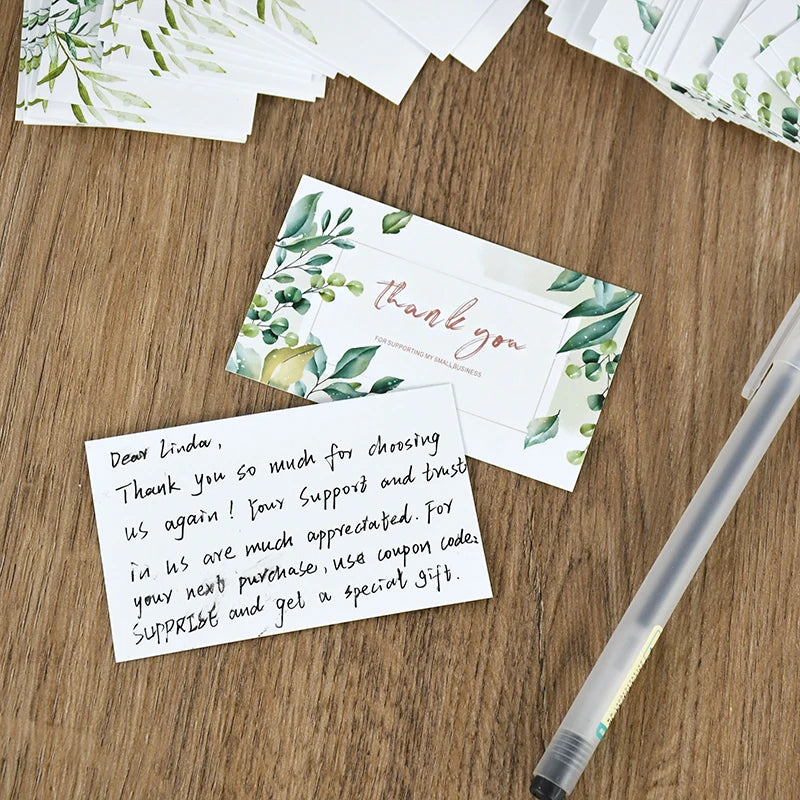 thank you
FOR SUPPORTING MY SMALL BUSINESS
Dear Linda,
Thank you so much for choosing
us again! Your Support and trust
in us are much appreciated. For
your next purchase, use coupon code:
SUPPRISE and get a special gift.